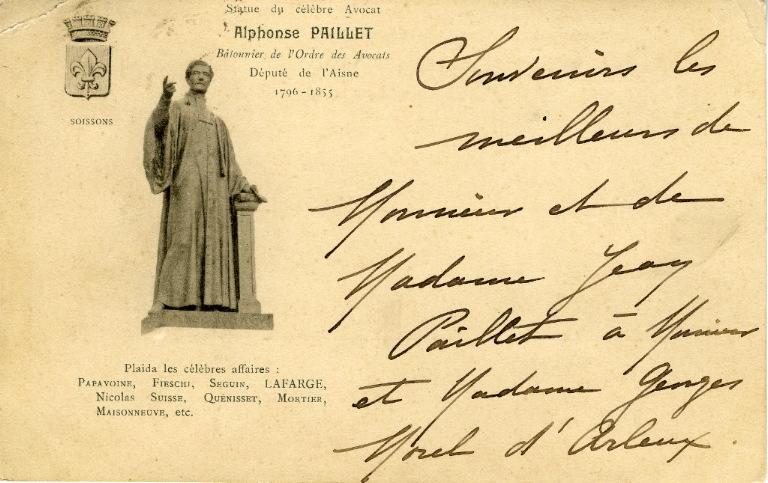 Statue du célèbre Avocat
Alphonse PAILLET
Bâtonnier de l'Ordre des Avocats
Député de l'Aisne
1796-1855
SOISSONS
Plaida les célèbres affaires :
PAPAVOINE, FIESCHI, SEGUIN, LAFARGE,
Nicolas SUISSE, QUÉNISSET, MORTIER,
MAISONNEUVE, etc.
Souvenirs les
meilleurs de
Monsieur et de
Madame Jean
Paillet à Monsieur
et Madame Georges
Morel d'Arleux.